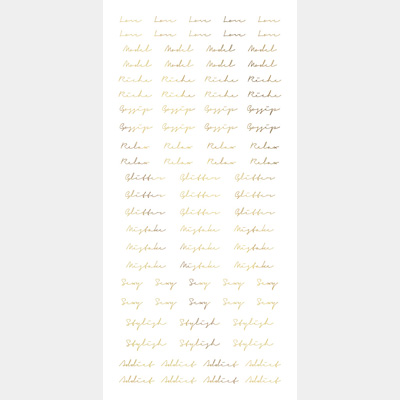 Love Love Love Love Love
Love Love Love Love Love
Model Model Model Model
Model Model Model Model
Niche Niche Niche Niche
Niche Niche Niche Niche
Gossip Gossip Gossip Gossip
Gossip Gossip Gossip Gossip
Relax Relax Relax Relax
Relax Relax Relax Relax
Glitter Glitter Glitter
Glitter Glitter Glitter
Glitter Glitter Glitter
Mistake Mistake Mistake
Mistake Mistake Mistake
Mistake Mistake Mistake
Sexy Sexy Sexy Sexy Sexy
Sexy Sexy Sexy Sexy Sexy
Stylish Stylish Stylish
Stylish Stylish Stylish
Addict Addict Addict Addict
Addict Addict Addict Addict